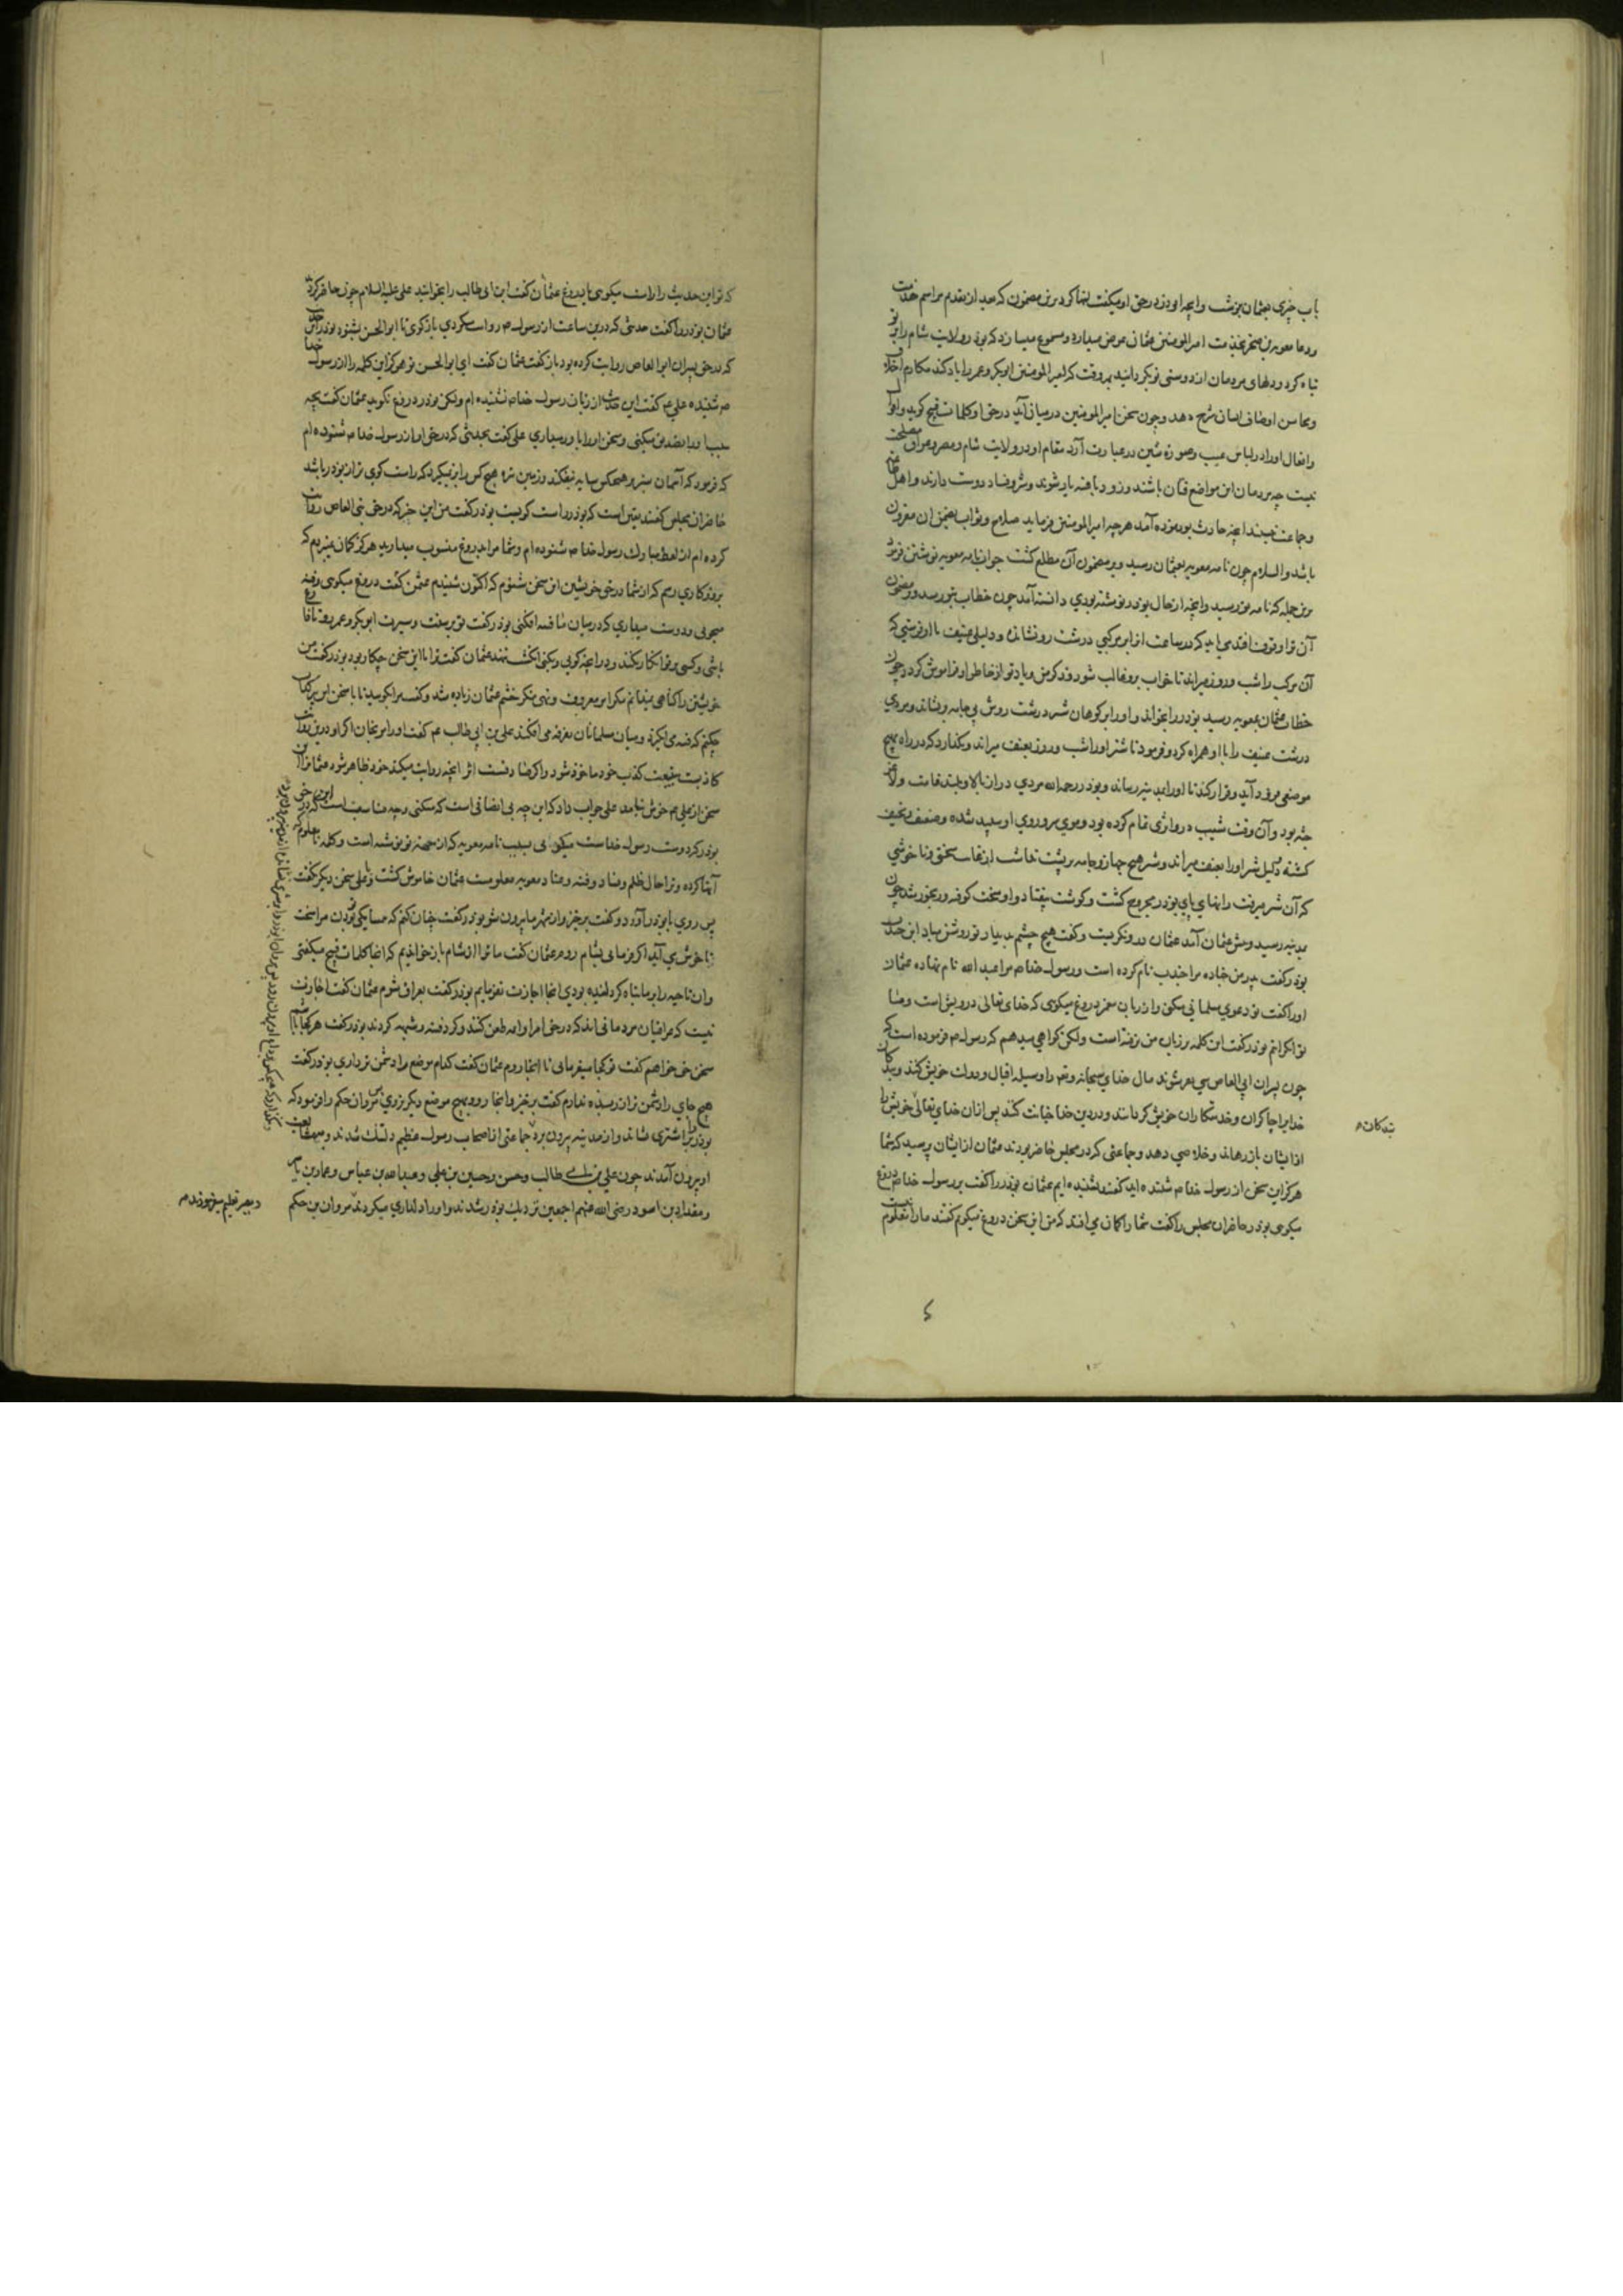 باب چیزی بعثمان نوشت و انچه ابوذر در حق او میگفت انها کرد برین مضمون که بعد از تقدیم مراسم خدمت
و دعا معویه بن صخر بخدمت امیرالمومنین عثمان عرض میدارد و مسموع میسازد که بوذر ولایت شام را بر تو
تباه کرد و دلهای مردمان از دوستی تو بگردانید هر وقت که امیرالمومنین ابوبکر و عمر را یاد کند مکارم اخلاق
و محاسن اوصاف ایشان شرح دهد و چون سخن امیرالمومنین در میان آید در حق او کلمات قبیح گوید و اقوال
و افعال او را در لباس عیب و صورة شین در عبارت آرد مقام او در ولایت شام و مصر و عراق مصلحت
نیست چه مردمان این مواضع فتان باشند و زود با فتنه یار شوند و شر و فساد دوست دارند و اهل
و جماعت نیند انچه حادث بود نموده آمد هرچه امیرالمومنین فرماید صلاح و ثواب بضمن ان مقرون
باشد والسلام چون نامه معویه بعثمان رسید و بر مضمون آن مطلع گشت جواب نامه معویه نوشتن فرمود
برین جمله که نامه تو رسید و انچه از حال بوذر نوشته بودی دانسته آمد چون خطاب بتو رسد و بر مضمون
آن ترا وقوف افتد می باید که در ساعت او را بر مرکبی درشت رو نشانی و دلیلی عنیف با او فرستی که
آن مرکب را شب و روز میراند تا خواب برو غالب شود و ذکر من و یاد تو از خاطر او فراموش گردد چون
خطاب عثمان بمعویه رسید بوذر را بخواند و او را بر کوهان شتر درشت روش بی جامه بنشاند و مردی
درشت عنیف را با او همراه کرد و فرمود تا شتر او را شب و روز بعنف میراند و نگذارد که در راه بهیچ
موضعی فرود آید و قرار کند تا او را بمدینه رساند و بوذر رحمه الله مردی دراز بالا و بلند قامت و لاغر
جثه بود و آن وقت شیب درو اثری تمام کرده بود و موی سر و روی او سپید شده و ضعیف و نحیف
گشته دلیل شتر او را بعنف میراند و شتر هیچ جهاز و جامه بر پشت نداشت از غایت سختی و ناخوشی
که آن شتر میرفت رانهای پای بوذر مجروح گشت و گوشت بیفتاد و او سخت کوفته و رنجور شد چون
بمدینه رسید و پیش عثمان آمد عثمان درو نگریست و گفت هیچ چشم بدیدار تو روشن مباد ابن جندب
بوذر گفت پدر من جناده مرا جندب نام کرده است و رسول خدا ص مرا عبد الله نام نهاده عثمان
او را گفت تو دعوی مسلمانی میکنی و از زبان ما بدروغ میگوی که خدای تعالی درویش است و ما
توانگرانیم بوذر گفت این کلمه بر زبان من نرفته است ولکن گواهی میدهم که رسول ص فرموده است که
چون پسران ابی العاص سی نفر شوند مال خدای سبحانه و تع را وسیله اقبال و دولت خویش کنند و بندگان
خدایرا چاکران و خدمتکاران خویش گردانند و در دین خدا خیانت کنند پس ازان خدای تعالی خویش را
بندگان
ازیشان باز رهاند و خلاصی دهد و جماعتی که در مجلس حاضر بودند عثمان ازیشان پرسید که شما
هرگز این سخن از رسول خدا ص شنیده اید گفتند نشنیده ایم عثمان بوذر را گفت بر رسول خدا ص دروغ
میگوی بوذر حاضران مجلس را گفت شما را گمان می افتد که من این سخن دروغ میگویم گفتند ما را معلوم نیست
که تو این حدیث را راست میگوی یا بدروغ عثمان گفت ابن ابی طالب را بخوانید علی علیه السلام چون حاضر گردید
عثمان بوذر را گفت حدیثی که درین ساعت از رسول ص روایت کردی بازگوی تا ابوالحسن بشنود بوذر این حدیث
که در حق پسران ابوالعاص روایت کرده بود باز گفت عثمان گفت ای ابوالحسن تو هرگز این کلمه را از رسول خدا
ص شنیده علی ع گفت این حدیث از زبان رسول خدا ص نشنیده ام ولکن بوذر دروغ نگوید عثمان گفت بچه
سبب او را تصدیق میکنی و سخن او را باور میداری علی گفت بحدیثی که در حق او از رسول خدا ص شنوده ام
که فرمود که آسمان سبز بر هیچکس سایه نیفکند و زمین تیره هیچ کس را بر نگیرد که راست گوی تر از بوذر باشد
حاضران مجلس گفتند یقین است که بوذر راست گویست بوذر گفت من این خبر که در حق بنی العاص روایت
کرده ام از لفظ مبارک رسول خدا ص شنوده ام و شما مرا بدروغ منسوب میدارید هرگز گمان نبردم که
بروزگاری رسم که از شما در حق خویشتن این سخن شنوم که اکنون شنیدم عثمن گفت دروغ میگوی و فتنه
میجوی و دوست میداری که در میان ما فتنه افکنی بوذر گفت تو بر سنت و سیرت ابوبکر و عمر رو تا فارغ
باشی و کسی بر تو انکار نکند و درانچه گوئی و بکنی انگشت ننهند عثمان گفت ترا با این سخن چکار بود بوذر گفت من
خویشتن را گناهی نمیدانم مگر امر معروف و نهی منکر خشم عثمان زیاده شد و گفت مرا بگویید تا با سخن این پیر کذاب
چکنم که فتنه می انگیزد و میان مسلمانان تفرقه می افکند علی بن ابی طالب ع م گفت او را مرنجان اگر او درین روایت
کاذب است بتبعت کذب خود ماخوذ شود و اگر صادقست اثر انچه روایت میکند خود ظاهر شود عثمانرا این
سخن از علی ع م خوش نیامد علی جواب داد که این چه بی انصافی است که میکنی و چه مناسبت است که در حق این
بوذر که دوست رسول خداست میگوئی بسبب نامه معویه که از جهته تو نوشته است و کلمه نامعلوم
آنها کرده و ترا حال ظلم و فساد و فتنه و عناد معویه معلومست عثمان خاموش گشت و با علی سخن دیگر نگفت
پس روی بابوذر آورد و گفت برخیز و از شهر ما بیرون شو بوذر گفت چنان کنم که همسایگی تو بودن مرا سخت
ناخوش می آید اگر فرمایی بشام روم عثمان گفت ما ترا از شام باز خواندیم که انجا کلمات قبیح میگفتی
وان ناحیه را بر ما تباه گردانیده بودی انجا اجازت نفرمایم بوذر گفت بعراق شوم عثمان گفت اجازت
نیست که عراقیان مردمانی اند که در حق امرا و ایمه طعن کنند و گرد فتنه و شبهه گردند بوذر گفت هر کجا باشم
سخن حق خواهم گفت تو کجا میفرمایی تا انجا روم عثمان گفت کدام موضع را دشمن تر داری بوذر گفت
هیچ جای را دشمن تر از ربذه ندارم گفت برخیز و انجا رو و بهیچ موضع دیگر مرو پس مروان حکم را فرمود که
بوذر را بر اشتری نشاند و از مدینه بیرون برد جماعتی از اصحاب رسول عظیم دلتنگ شدند و بمشایعت
او بیرون آمدند چون علی بن ابی طالب و حسن و حسین بن علی و عبدالله بن عباس و عمار بن یاسر
و مقداد بن اسود رضی الله عنهم اجمعین نزدیک بوذر شدند و او را دلداری میکردند مروان بن حکم